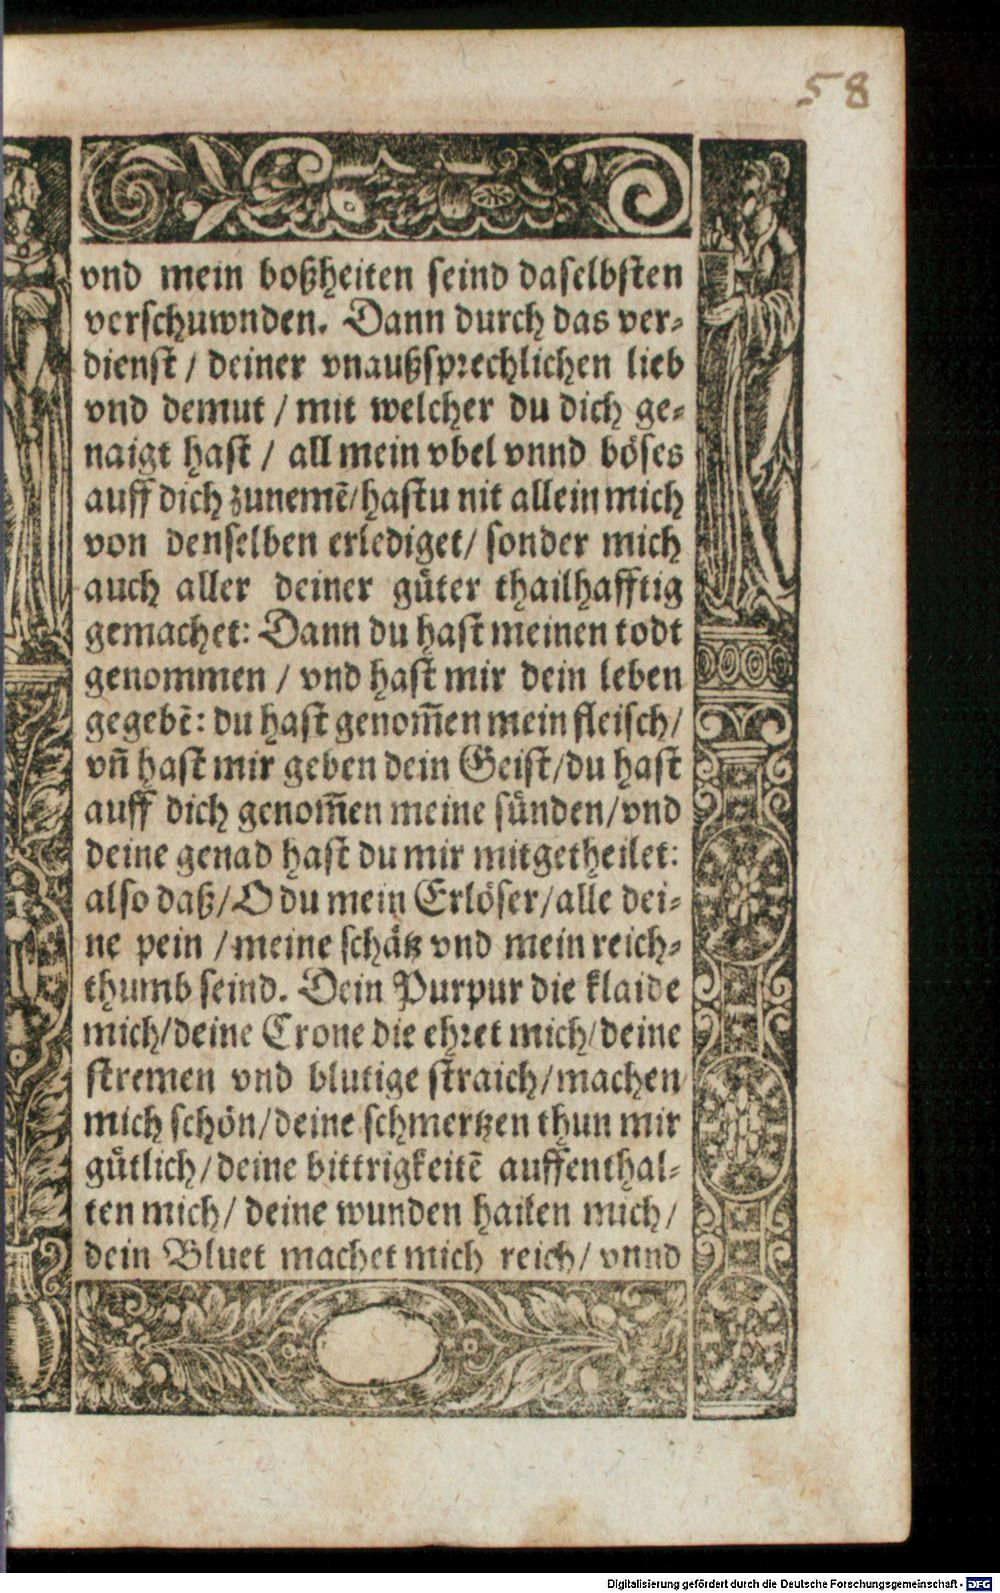 58
vnd mein boßheiten seind daselbsten
verschuwnden. Dann durch das ver-
dienst / deiner vnaußsprechlichen lieb
vnd demut / mit welcher du dich ge-
naigt hast / all mein vbel vnnd böses
auff dich zunemē/hastu nit allein mich
von denselben erlediget/ sonder mich
auch aller deiner güter thailhafftig
gemachet: Dann du hast meinen todt
genommen / vnd hast mir dein leben
gegebē: du hast genom̄en mein fleisch/
vn̄ hast mir geben dein Geist/du hast
auff dich genom̄en meine sünden/vnd
deine genad hast du mir mitgetheilet:
also daß/O du mein Erlöser/alle dei-
ne pein /meine schätz vnd mein reich-
thumb seind. Dein Purpur die klaide
mich/deine Crone die ehret mich/deine
stremen vnd blutige straich/machen
mich schön/deine schmertzen thun mir
gütlich/deine bittrigkeitē auffenthal-
ten mich/ deine wunden hailen mich/
dein Bluet machet mich reich/ vnnd
Digitalisierung gefördert durch die Deutsche Forschungsgemeinschaft - DFG